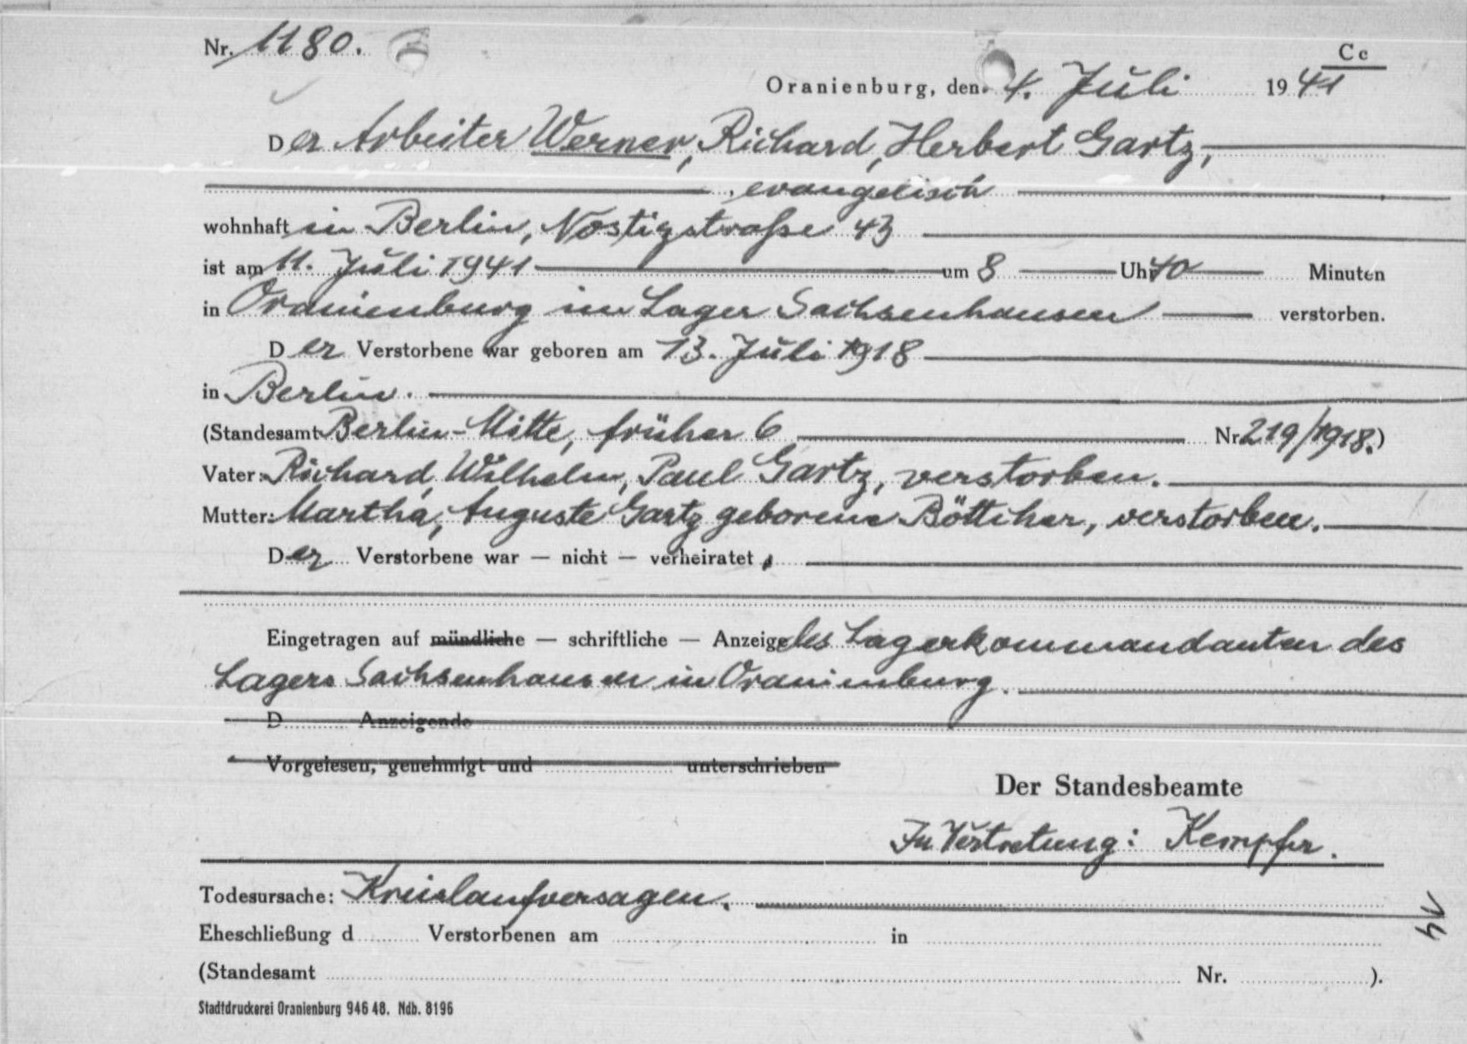 Nr. 1180.
Cc
Oranienburg, den 4. Juli 1941
Der Arbeiter Werner, Richard, Herbert Gartz,
evangelisch
wohnhaft in Berlin, Nostizstraße 43
ist am 11. Juli 1941 um 8 Uhr 40 Minuten
in Oranienburg im Lager Sachsenhausen verstorben.
Der Verstorbene war geboren am 13. Juli 1918
in Berlin.
(Standesamt Berlin-Mitte, früher 6 Nr 219/1918.)
Vater: Richard, Wilhelm, Paul Gartz, verstorben.
Mutter: Martha, Auguste Gartz geborene Bötticher, verstorben.
Der Verstorbene war — nicht — verheiratet.
Eingetragen auf mündliche — schriftliche — Anzeige des Lagerkommandanten des
Lagers Sachsenhausen in Oranienburg.
D Anzeigende
Vorgelesen, genehmigt und unterschrieben
Der Standesbeamte
In Vertretung: Kempfer.
Todesursache: Kreislaufversagen.
Eheschließung d Verstorbenen am in
(Standesamt Nr. ).
Stadtdruckerei Oranienburg 946 48. Ndb. 8196